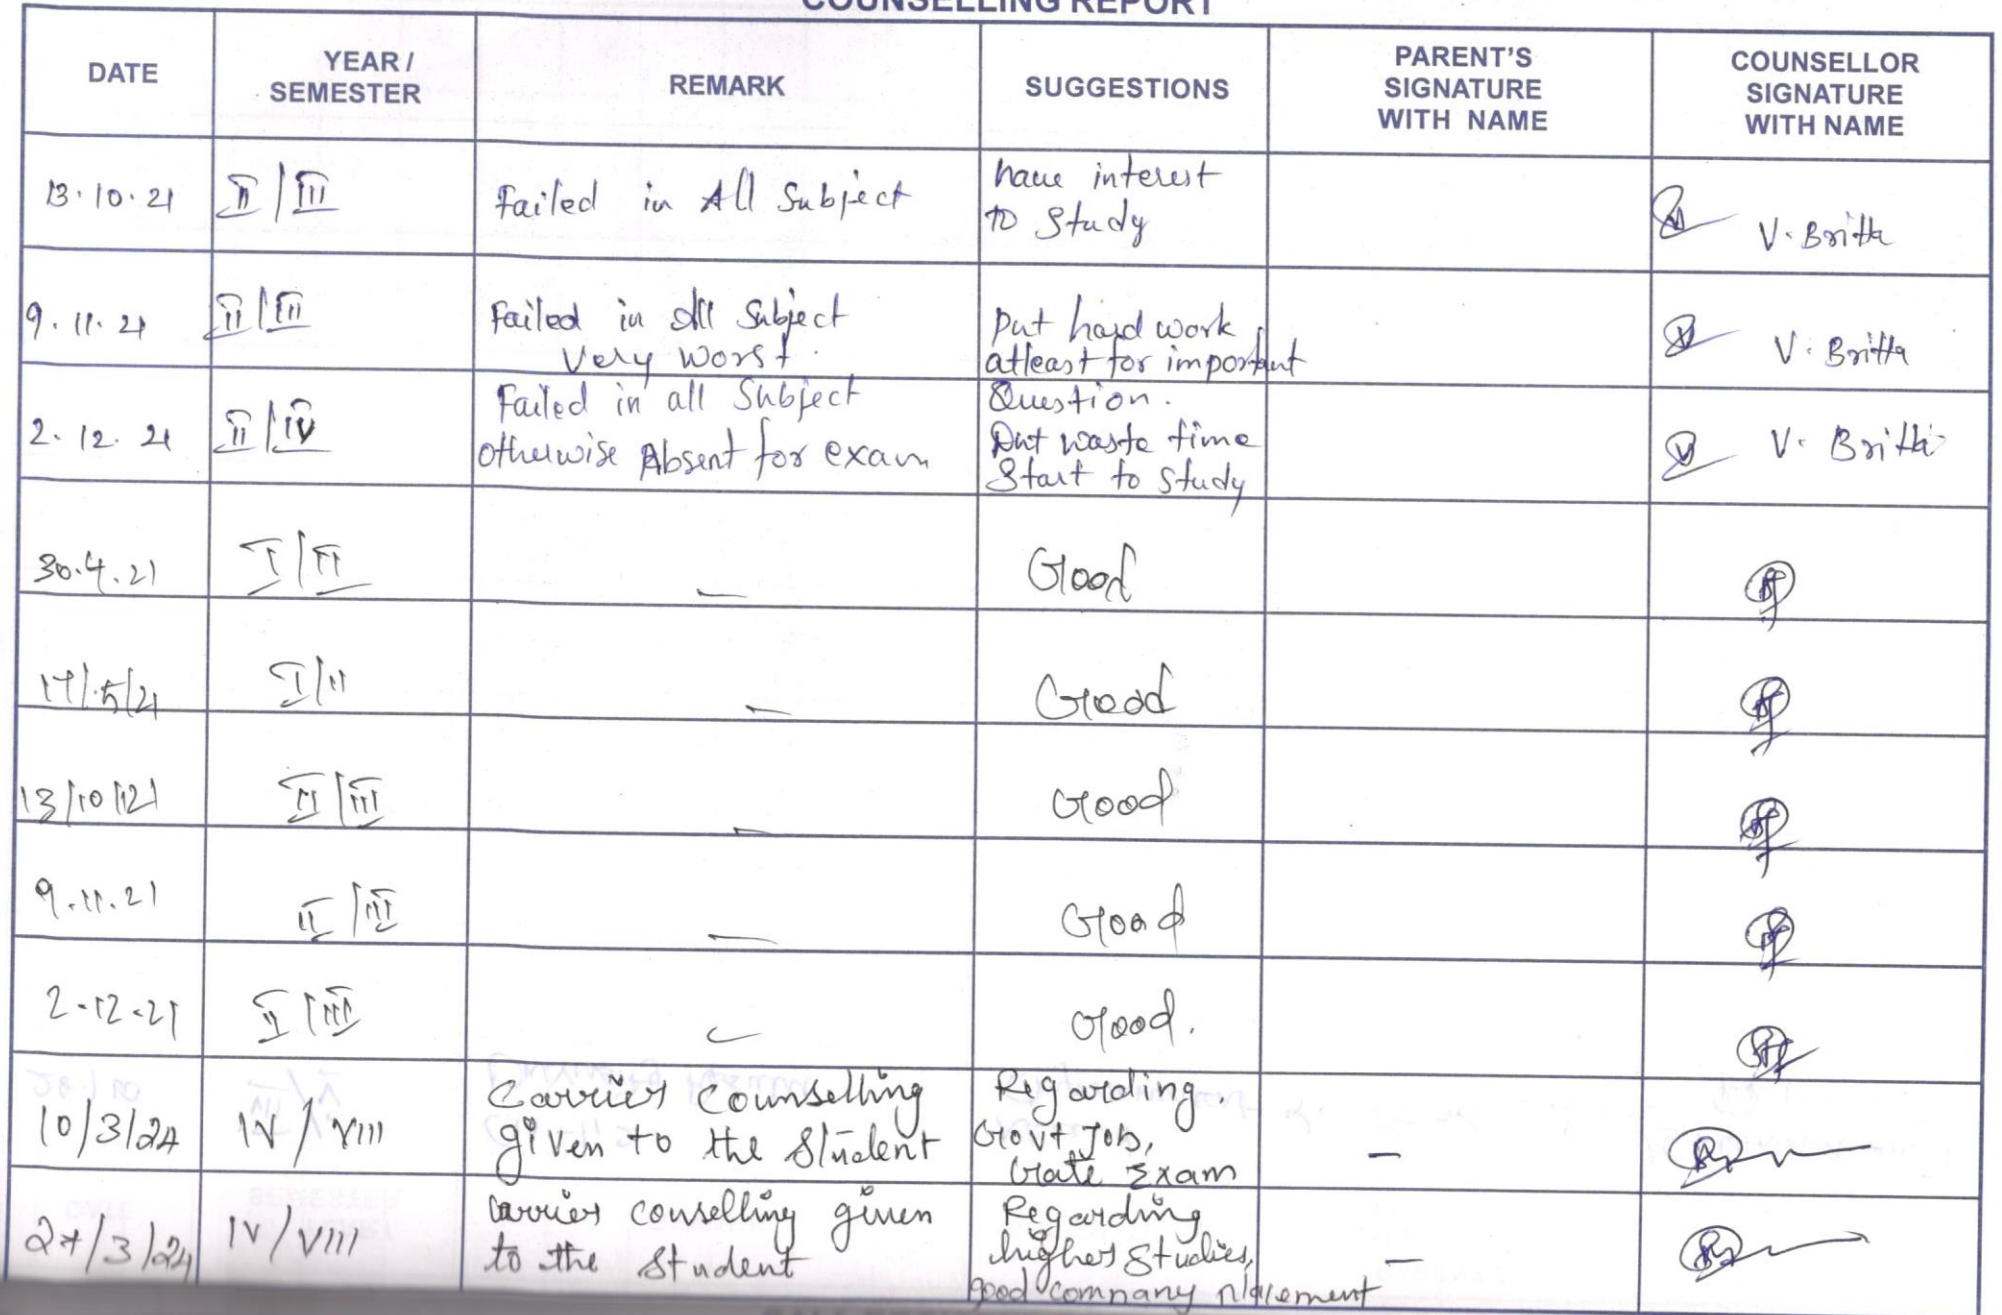 COUNSELLING REPORT
DATE
YEAR /
SEMESTER
REMARK
SUGGESTIONS
PARENT'S
SIGNATURE
WITH NAME
COUNSELLOR
SIGNATURE
WITH NAME
13.10.21
II / III
Failed in All Subject
have interest
to Study
V. Britta
9.11.21
II / III
Failed in all Subject
Very Worst.
Put hard work
atleast for important
Question.
V. Britta
2.12.21
II / IV
Failed in all Subject
otherwise Absent for exam
Dnt waste time
Start to Study
V. Britta
30.4.21
I / II
—
Good
17/5/21
I / II
—
Good
13/10/21
II / III
—
Good
9.11.21
II / III
—
Good
2.12.21
II / III
—
Good.
10/3/24
IV / VIII
Carrier Counselling
given to the Student
Regarding.
Govt Job,
Gate Exam
—
27/3/24
IV / VIII
Carrier conselling given
to the Student
Regarding
higher Studies,
good company placement
—